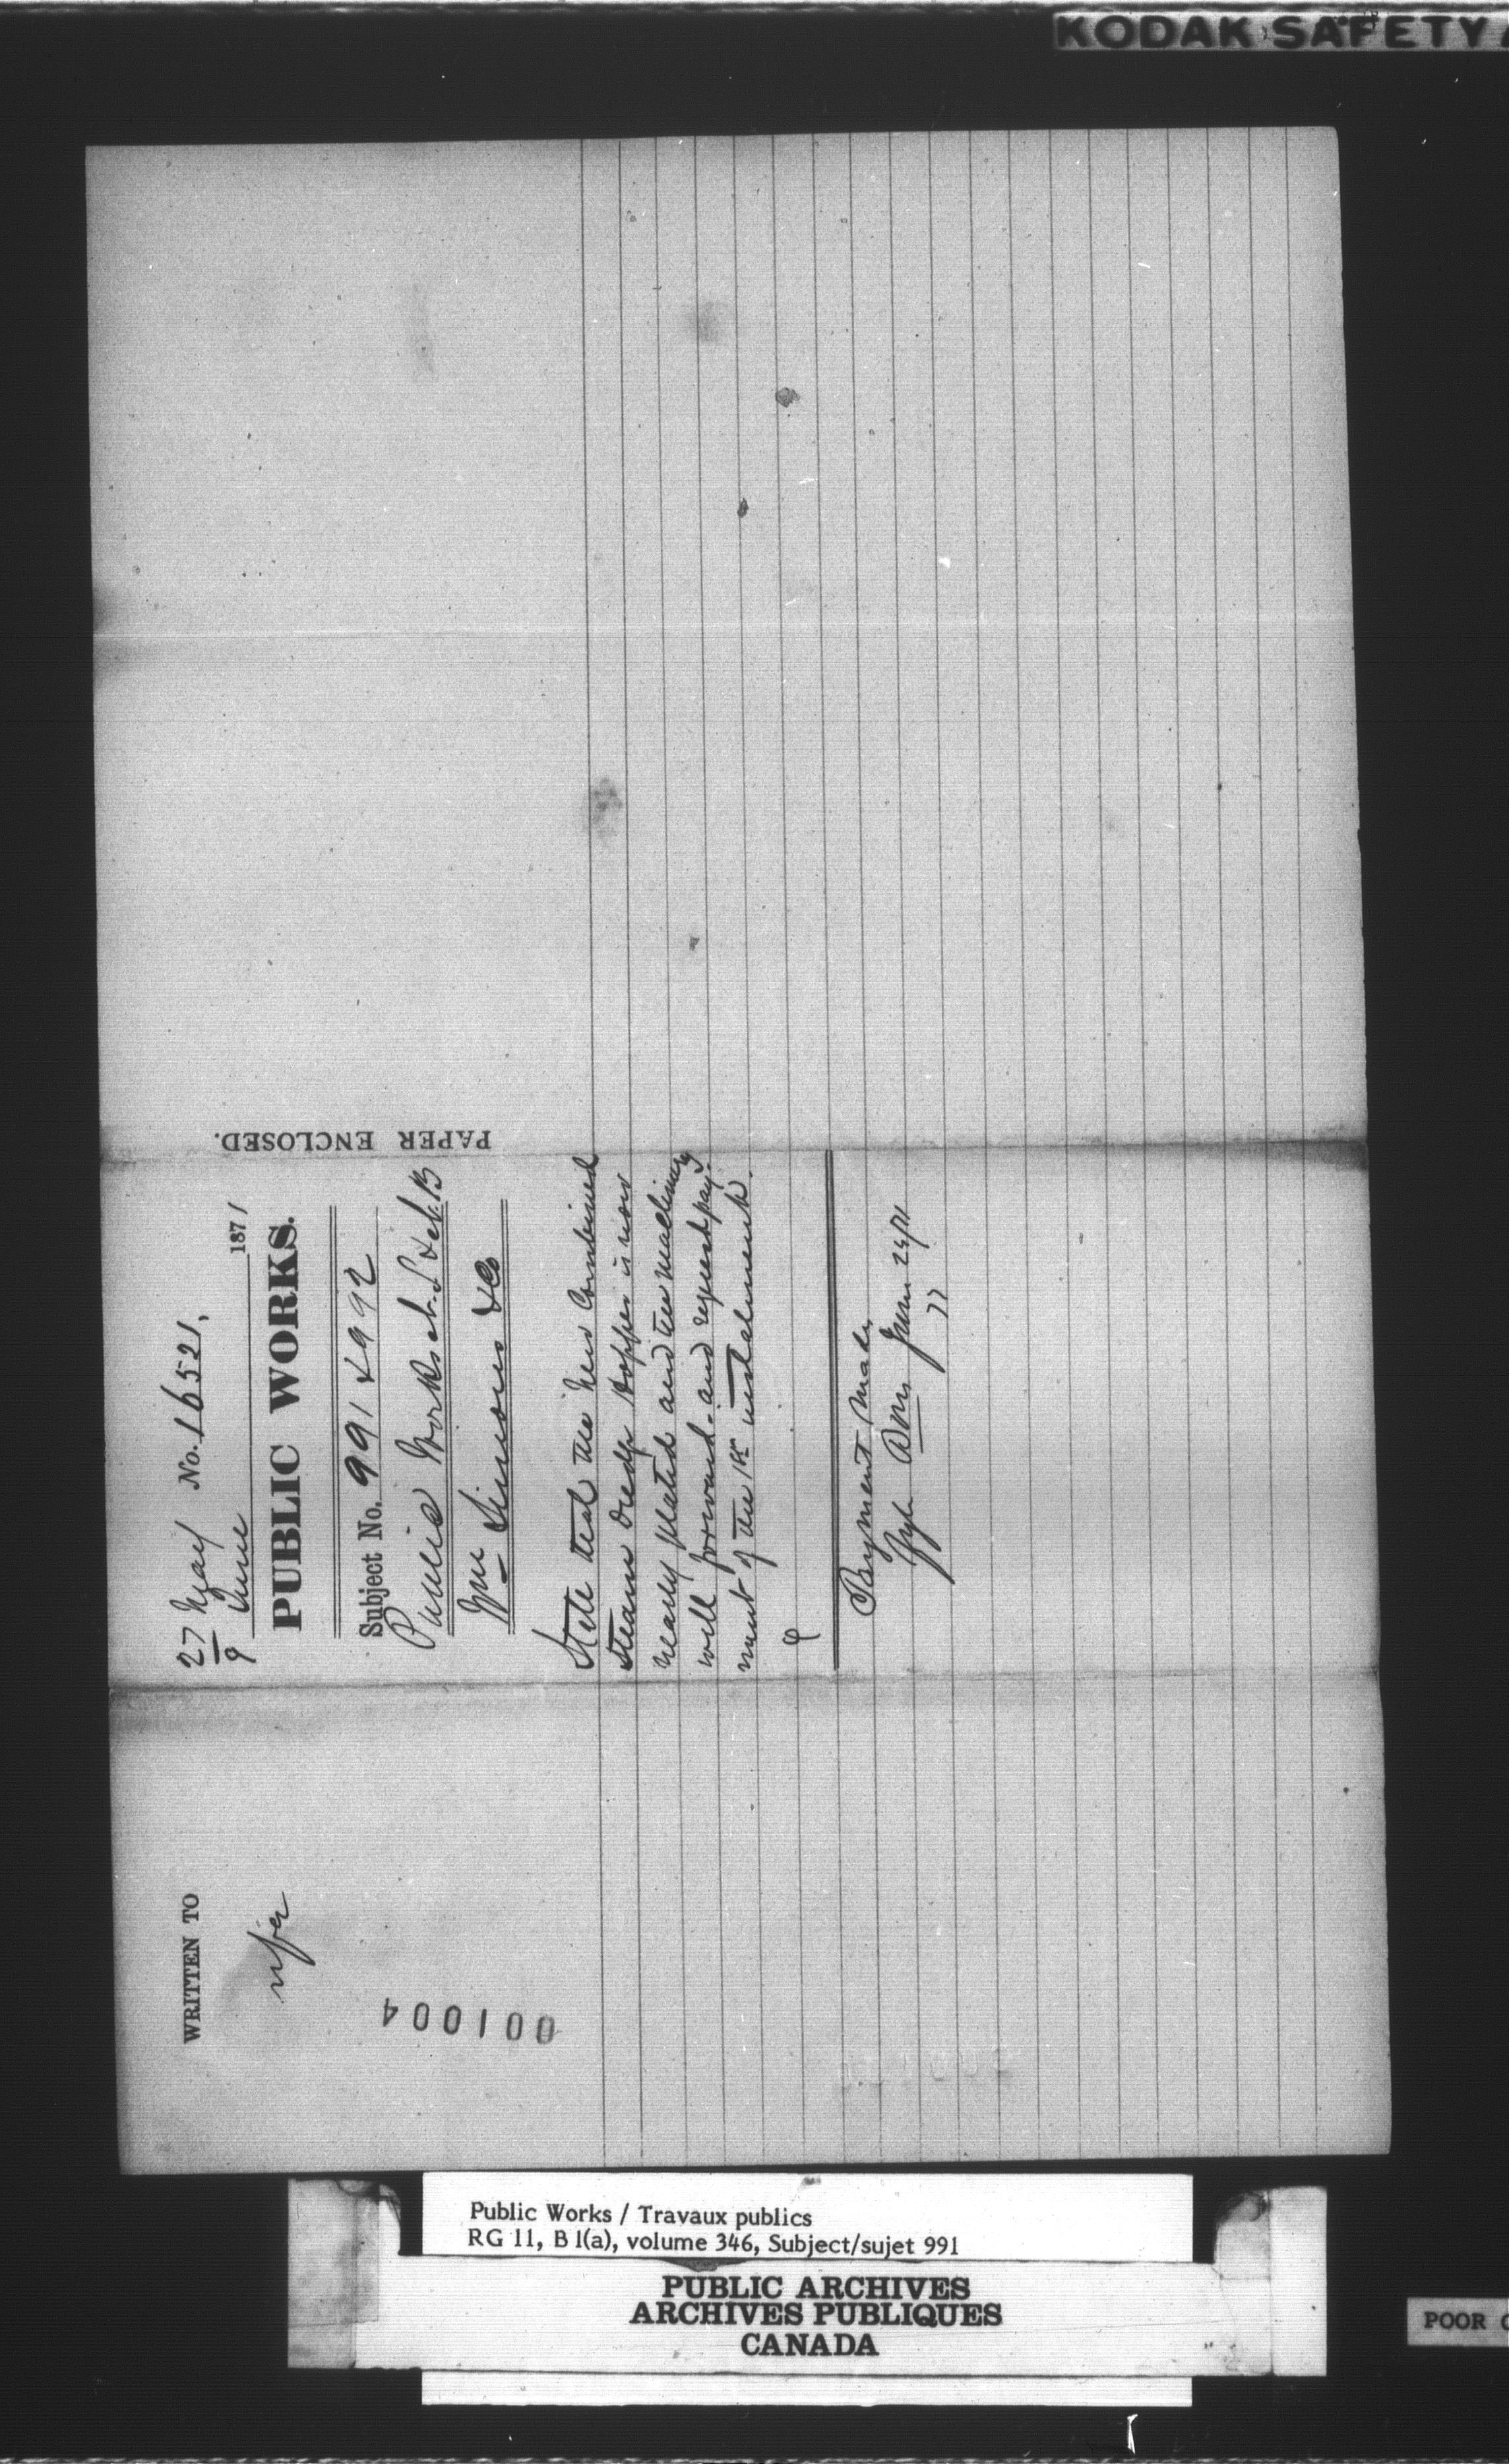 KODAK SAFETY
27 May No. 16521.
9 June 1871
PUBLIC WORKS.
Subject No. 991 & 992
Public Works
Wm Simons & Co
State that the new Combined
Steam Dredge Hopper is now
nearly plated and the machinery
well forward. and request pay-
ment of the 1st instalment.
Payment made
June 23/71
PAPER ENCLOSED.
WRITTEN TO
001004
Public Works / Travaux publics
RG 11, B 1(a), volume 346, Subject/sujet 991
PUBLIC ARCHIVES
ARCHIVES PUBLIQUES
CANADA
POOR